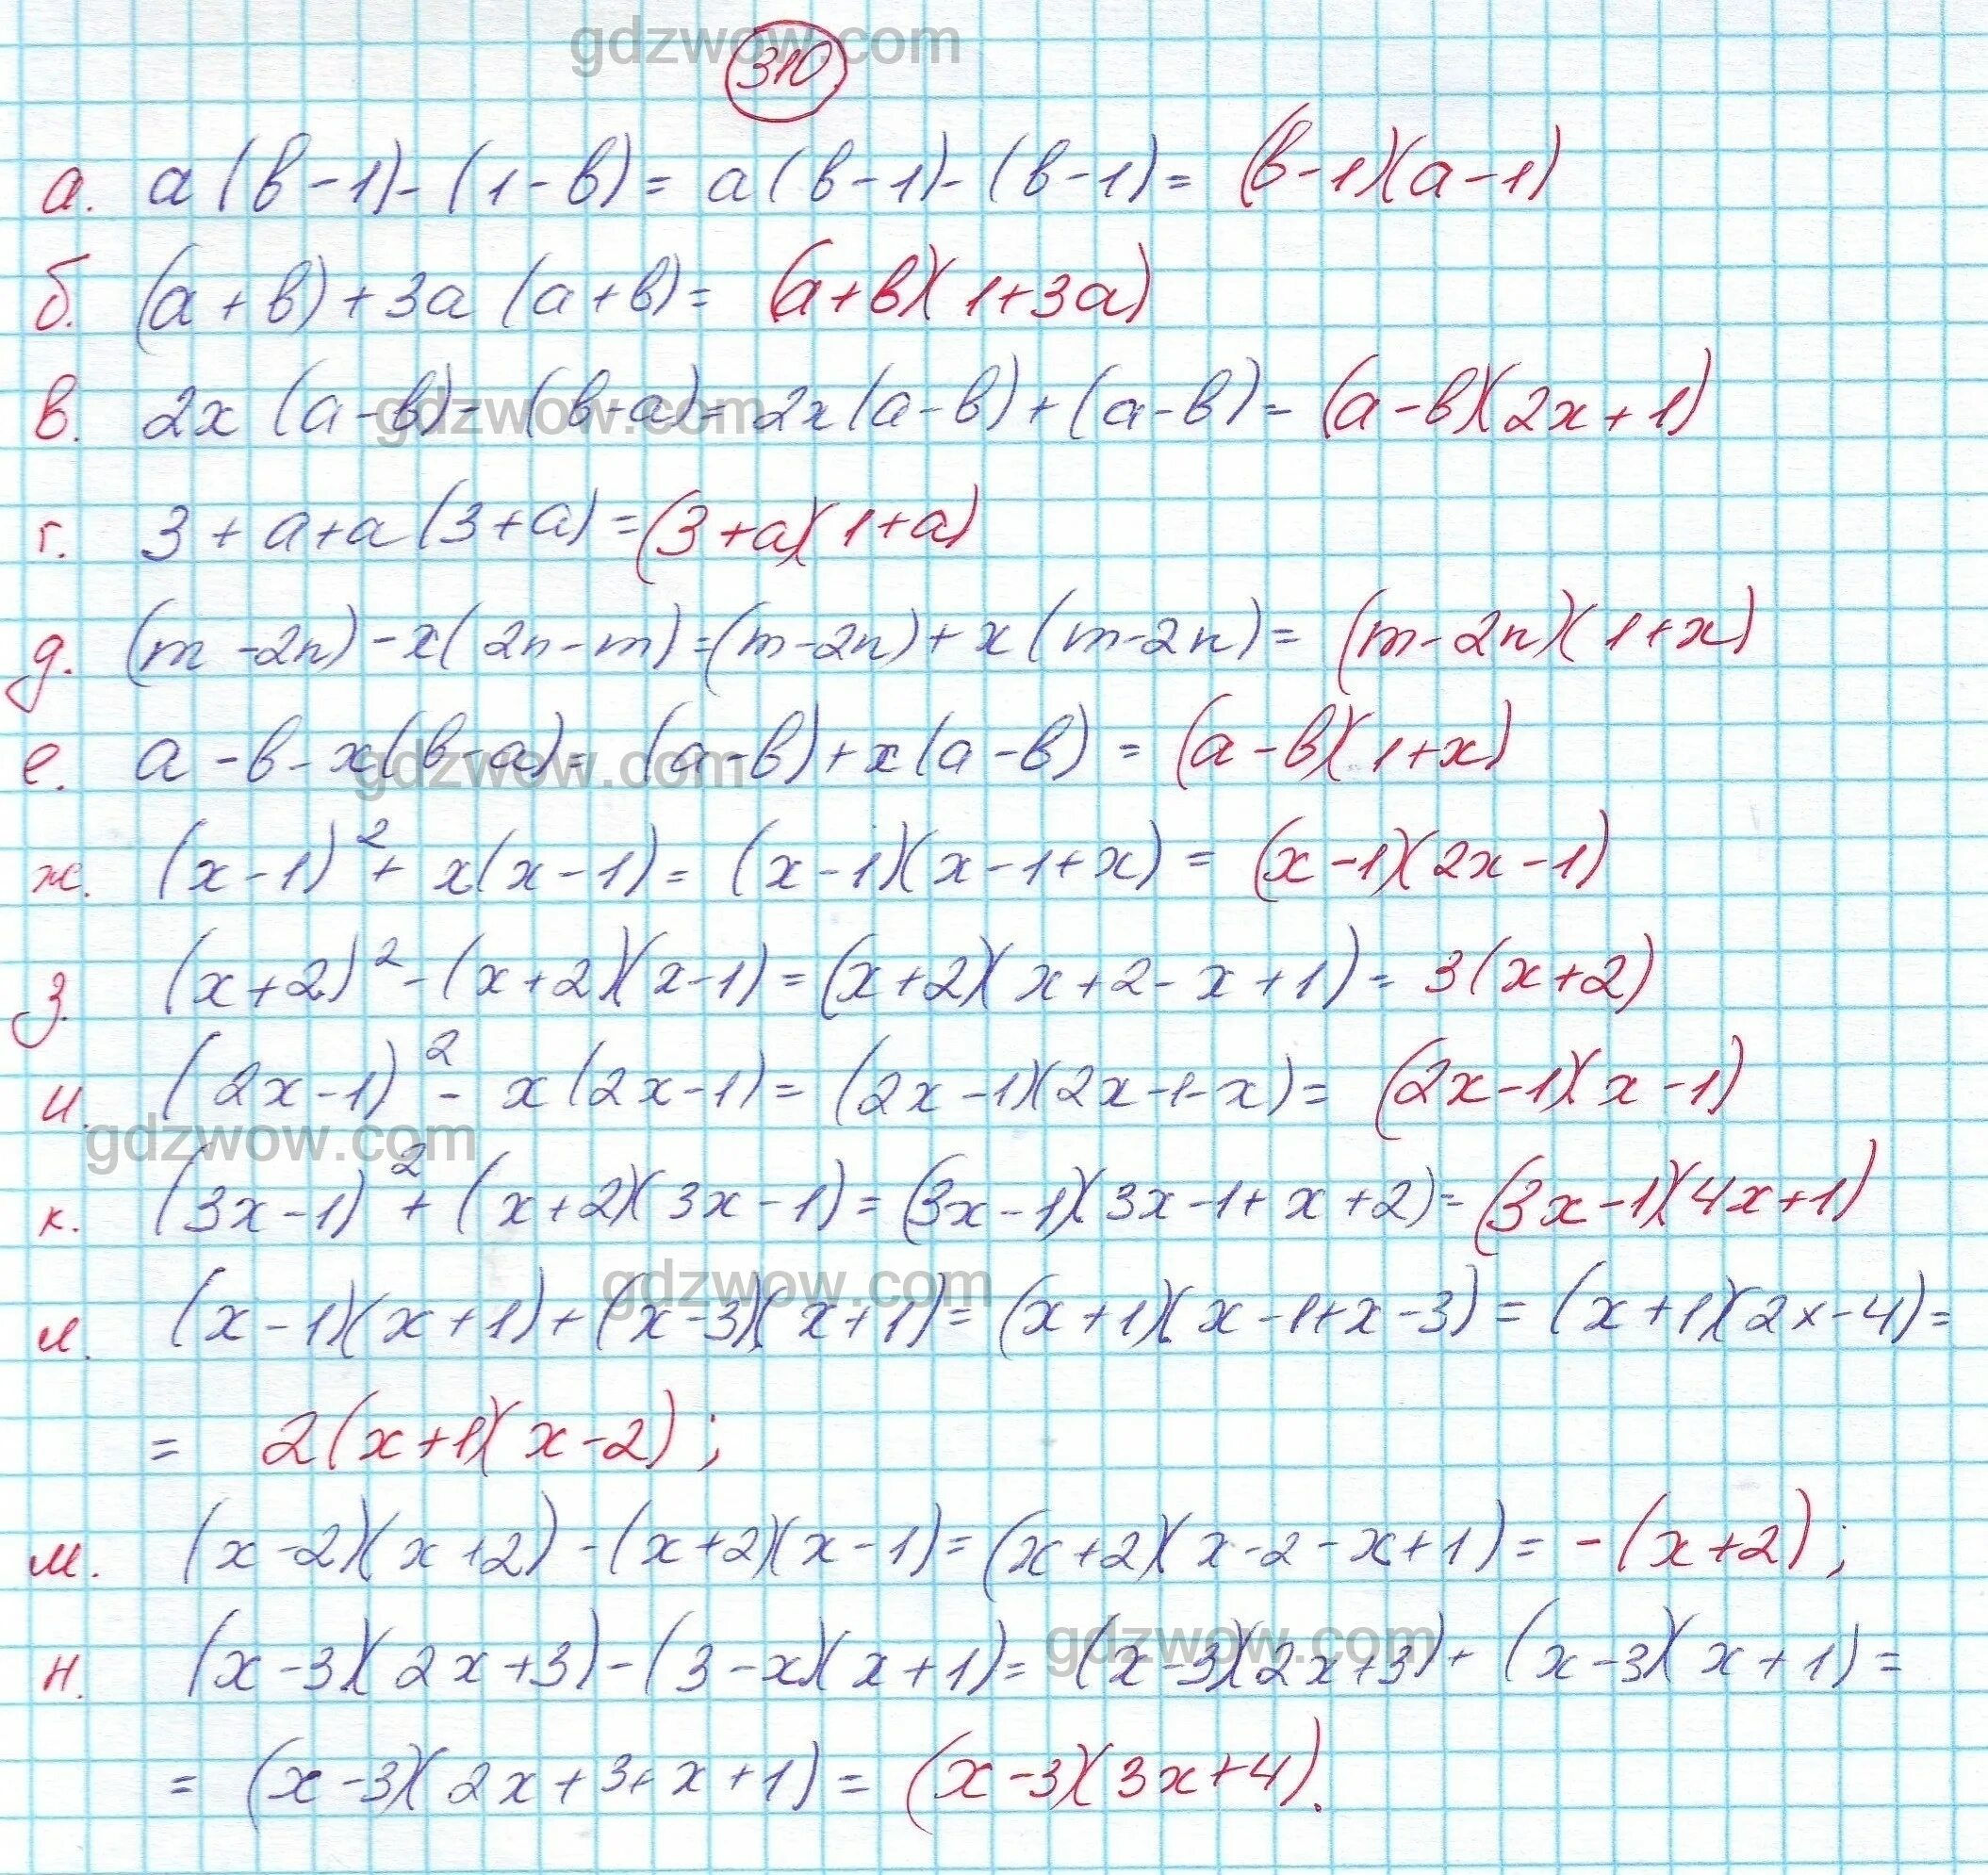 gdzwow.com
310
а. a(b-1)-(1-b)= a(b-1)-(b-1)= (b-1)(a-1)
б. (a+b)+3a(a+b)= (a+b)(1+3a)
в. 2x(a-b)-(b-a)=2x(a-b)+(a-b)= (a-b)(2x+1)
gdzwow.com
г. 3+a+a(3+a)=(3+a)(1+a)
д. (m-2n)-x(2n-m)=(m-2n)+x(m-2n)= (m-2n)(1+x)
е. a-b-x(b-a)= (a-b)+x(a-b)= (a-b)(1+x)
gdzwow.com
ж. (x-1)²+x(x-1)= (x-1)(x-1+x)= (x-1)(2x-1)
з. (x+2)²-(x+2)(x-1)=(x+2)(x+2-x+1)= 3(x+2)
и. (2x-1)²-x(2x-1)= (2x-1)(2x-1-x)= (2x-1)(x-1)
gdzwow.com
к. (3x-1)²+(x+2)(3x-1)=(3x-1)(3x-1+x+2)=(3x-1)(4x+1)
gdzwow.com
л. (x-1)(x+1)+(x-3)(x+1)=(x+1)(x-1+x-3)=(x+1)(2x-4)=
= 2(x+1)(x-2);
м. (x-2)(x+2)-(x+2)(x-1)=(x+2)(x-2-x+1)=-(x+2);
н. (x-3)(2x+3)-(3-x)(x+1)= (x-3)(2x+3)+(x-3)(x+1)=
gdzwow.com
= (x-3)(2x+3+x+1)= (x-3)(3x+4).